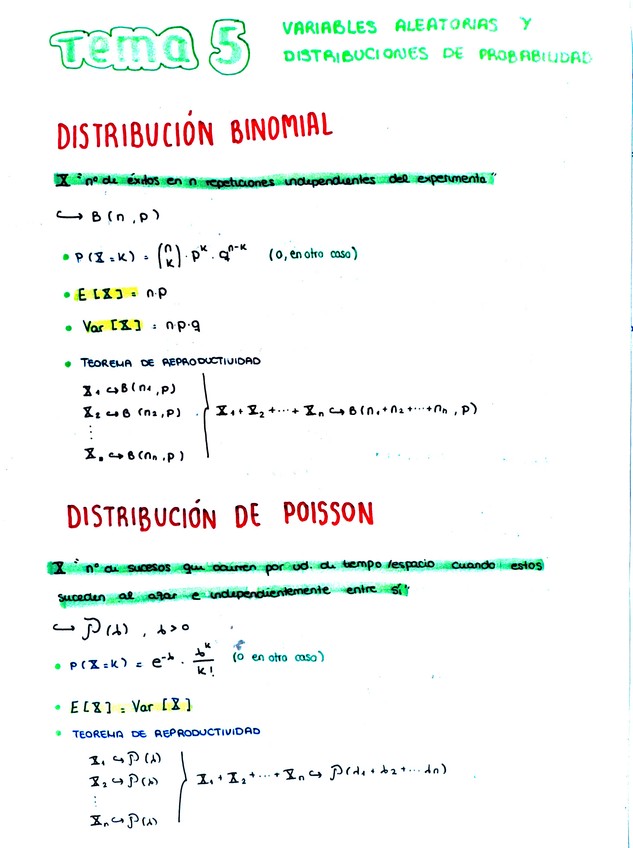 Tema 5
VARIABLES ALEATORIAS Y
DISTRIBUCIONES DE PROBABILIDAD
DISTRIBUCIÓN BINOMIAL
X "nº de éxitos en n repeticiones independientes del experimento"
↪ B(n,p)
• P(X=k) = (n k)·p^k·q^n-k (0, en otro caso)
• E[X] = n·p
• Var[X] = n·p·q
• TEOREMA DE REPRODUCTIVIDAD
X₁ ↪ B(n₁,p)
X₂ ↪ B(n₂,p)
⋮
Xₙ ↪ B(nₙ,p)
X₁+X₂+···+Xₙ ↪ B(n₁+n₂+···+nₙ,p)
DISTRIBUCIÓN DE POISSON
X "nº de sucesos que ocurren por ud. de tiempo/espacio cuando estos
suceden al azar e independientemente entre sí"
↪ P(λ), λ>0
• P(X=k) = e^-λ · λ^k/k! (0 en otro caso)
• E[X] = Var[X]
• TEOREMA DE REPRODUCTIVIDAD
X₁ ↪ P(λ)
X₂ ↪ P(λ)
⋮
Xₙ ↪ P(λ)
X₁+X₂+···+Xₙ ↪ P(λ₁+λ₂+···λₙ)